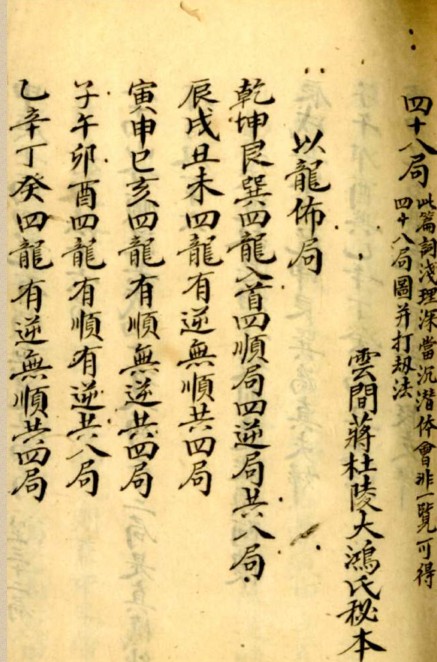 四十八局
此篇詞淺理深當沉潛体會非一覽可得
四十八局圖并打刼法
雲間蔣杜陵大鴻氏秘本
以龍佈局
乾坤艮巽四龍入首四順局四逆局共八局
辰戌丑未四龍有逆無順共四局
寅申巳亥四龍有順無逆共四局
子午卯酉四龍有順有逆共八局
乙辛丁癸四龍有逆無順共四局